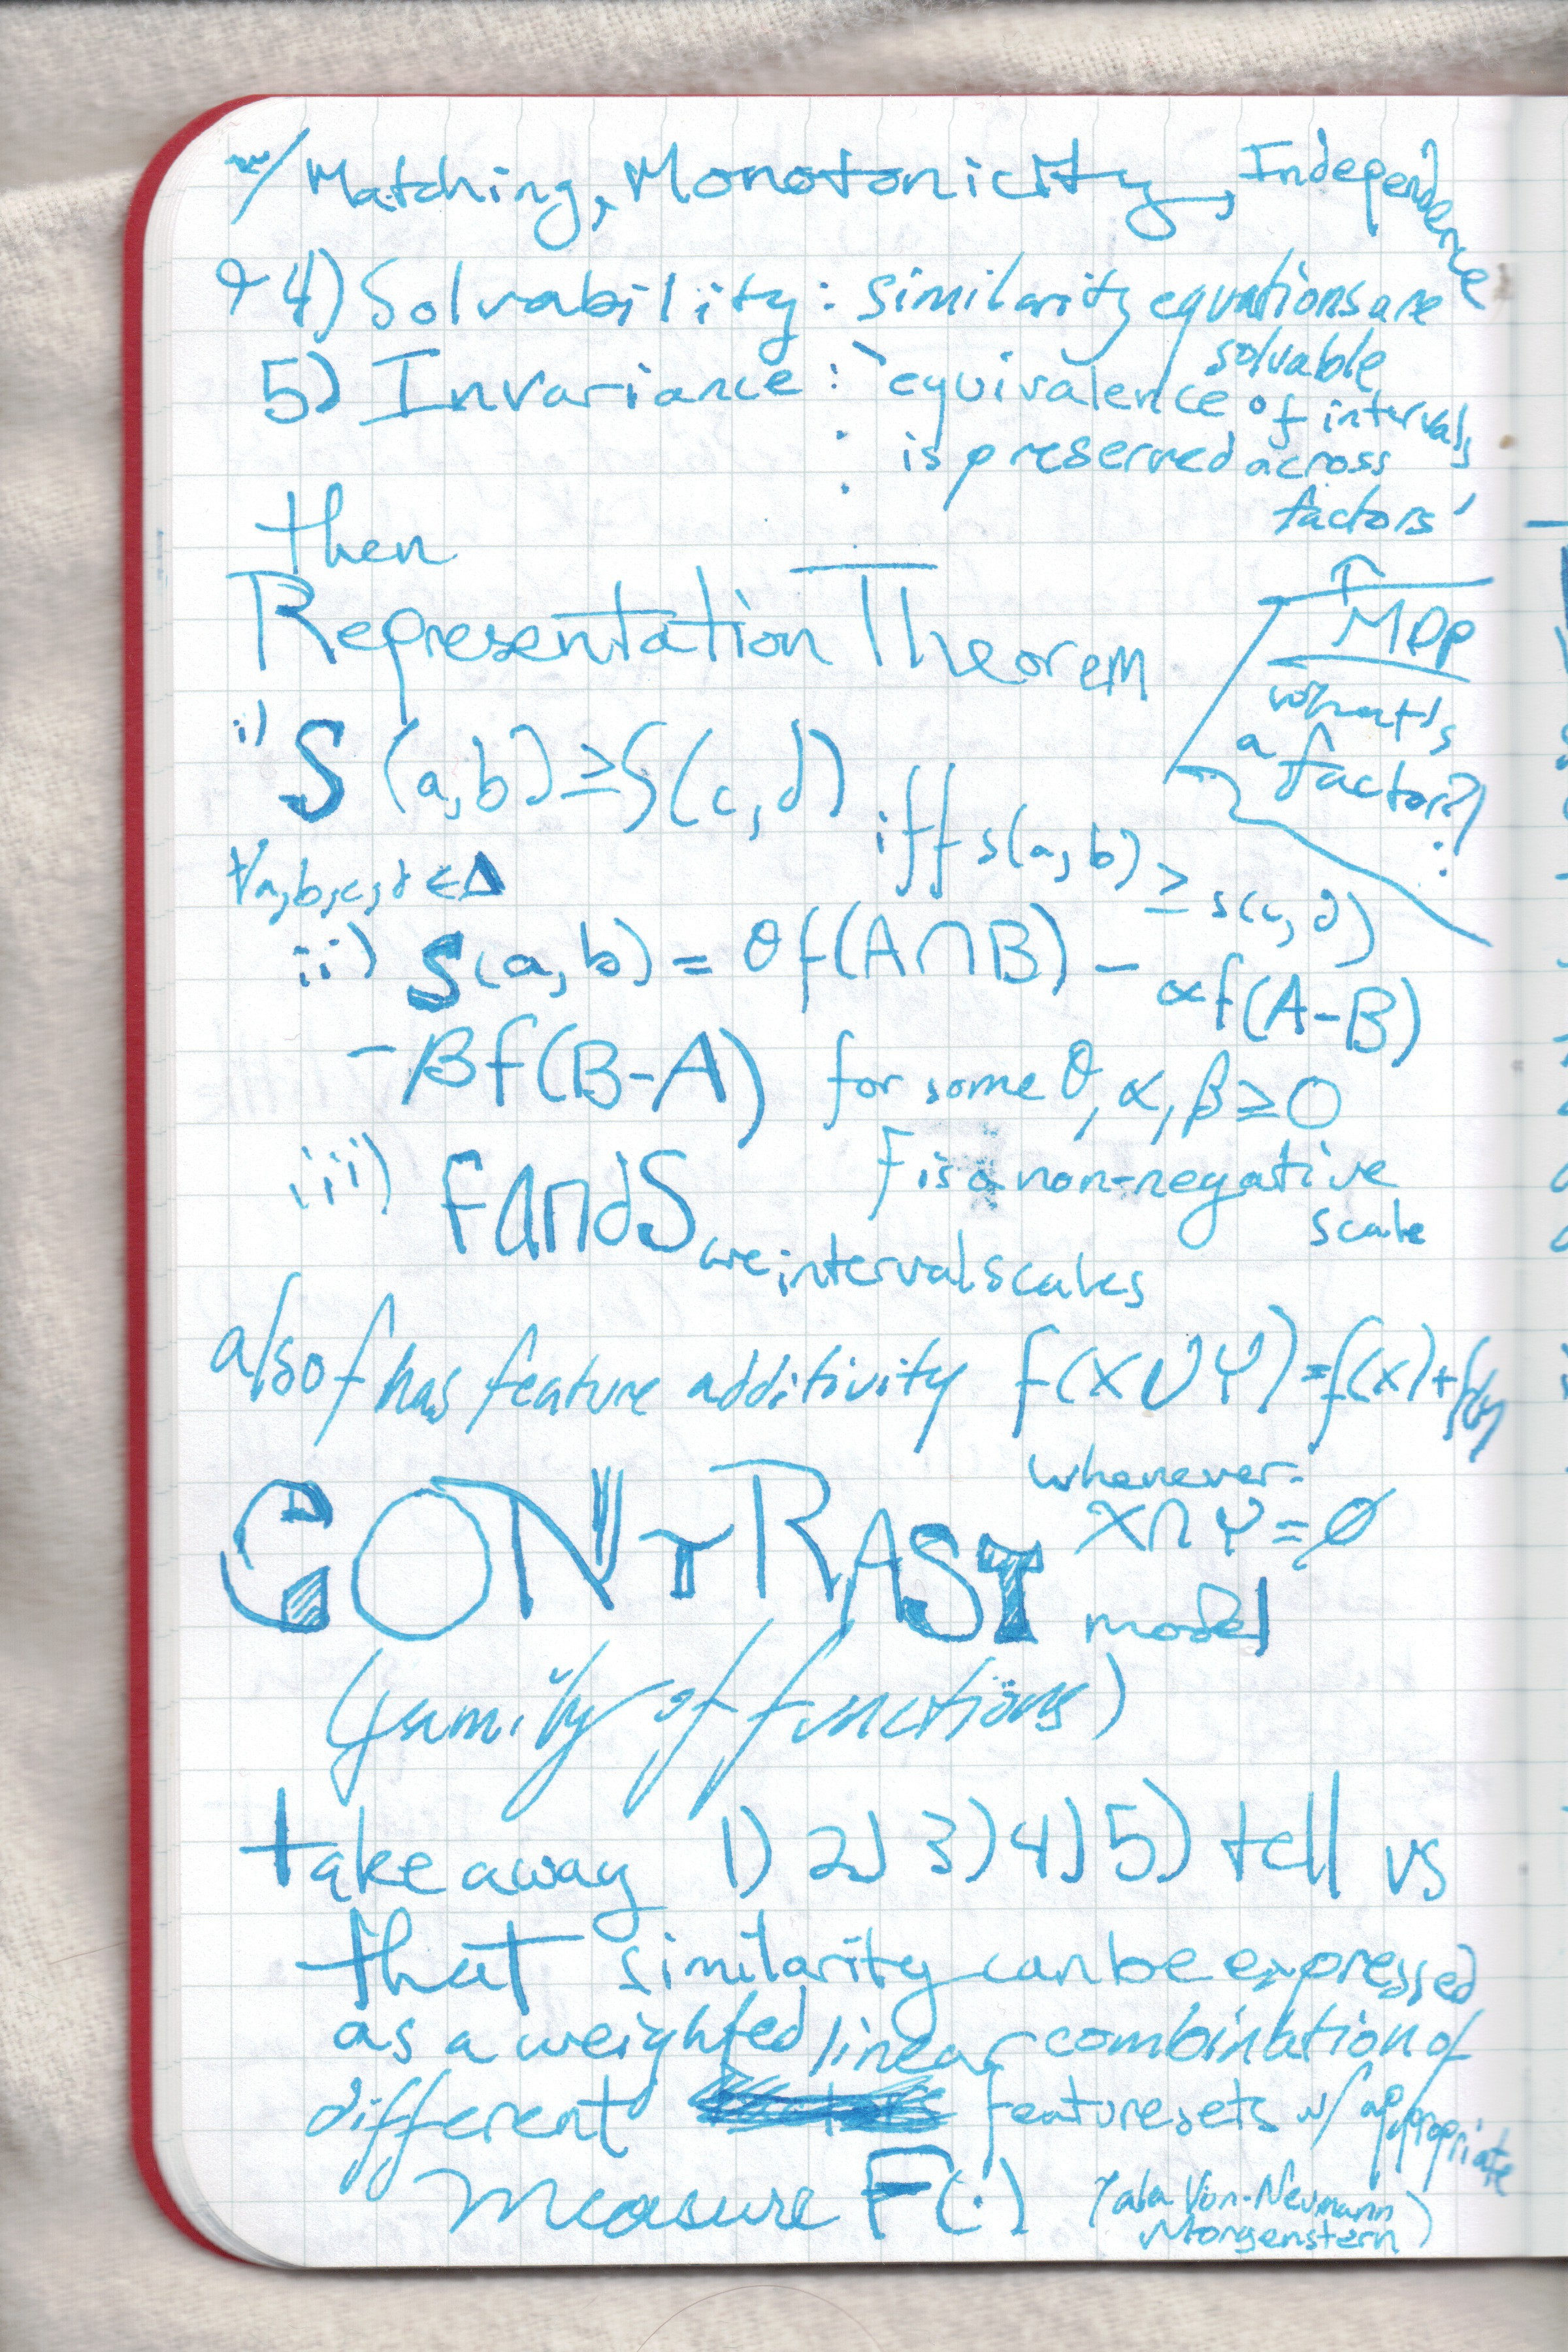 w/ Matching, Monotonicity, Independence
& 4) Solvability: similarity equations are
solvable
5) Invariance: 'equivalence of intervals
is preserved across
factors'
then
Representation Theorem
what's
a factor?)
i) S(a,b) ≥ S(c,d) iff s(a,b) ≥ s(c,d)
∀a,b,c,d ∈ Δ
ii) S(a,b) = θf(A∩B) - αf(A-B)
-βf(B-A) for some θ, α, β ≥ 0
F is a non-negative
scale
iii) f and S are interval scales
also f has feature additivity f(X∪Y)=f(x)+f(y)
whenever
X∩Y=∅
CONTRAST model
(family of functions)
take away 1) 2) 3) 4) 5) tell us
that similarity can be expressed
as a weighted linear combination of
different feature sets w/ appropriate
measure F(·) (ala Von-Neumann
Morgenstern)